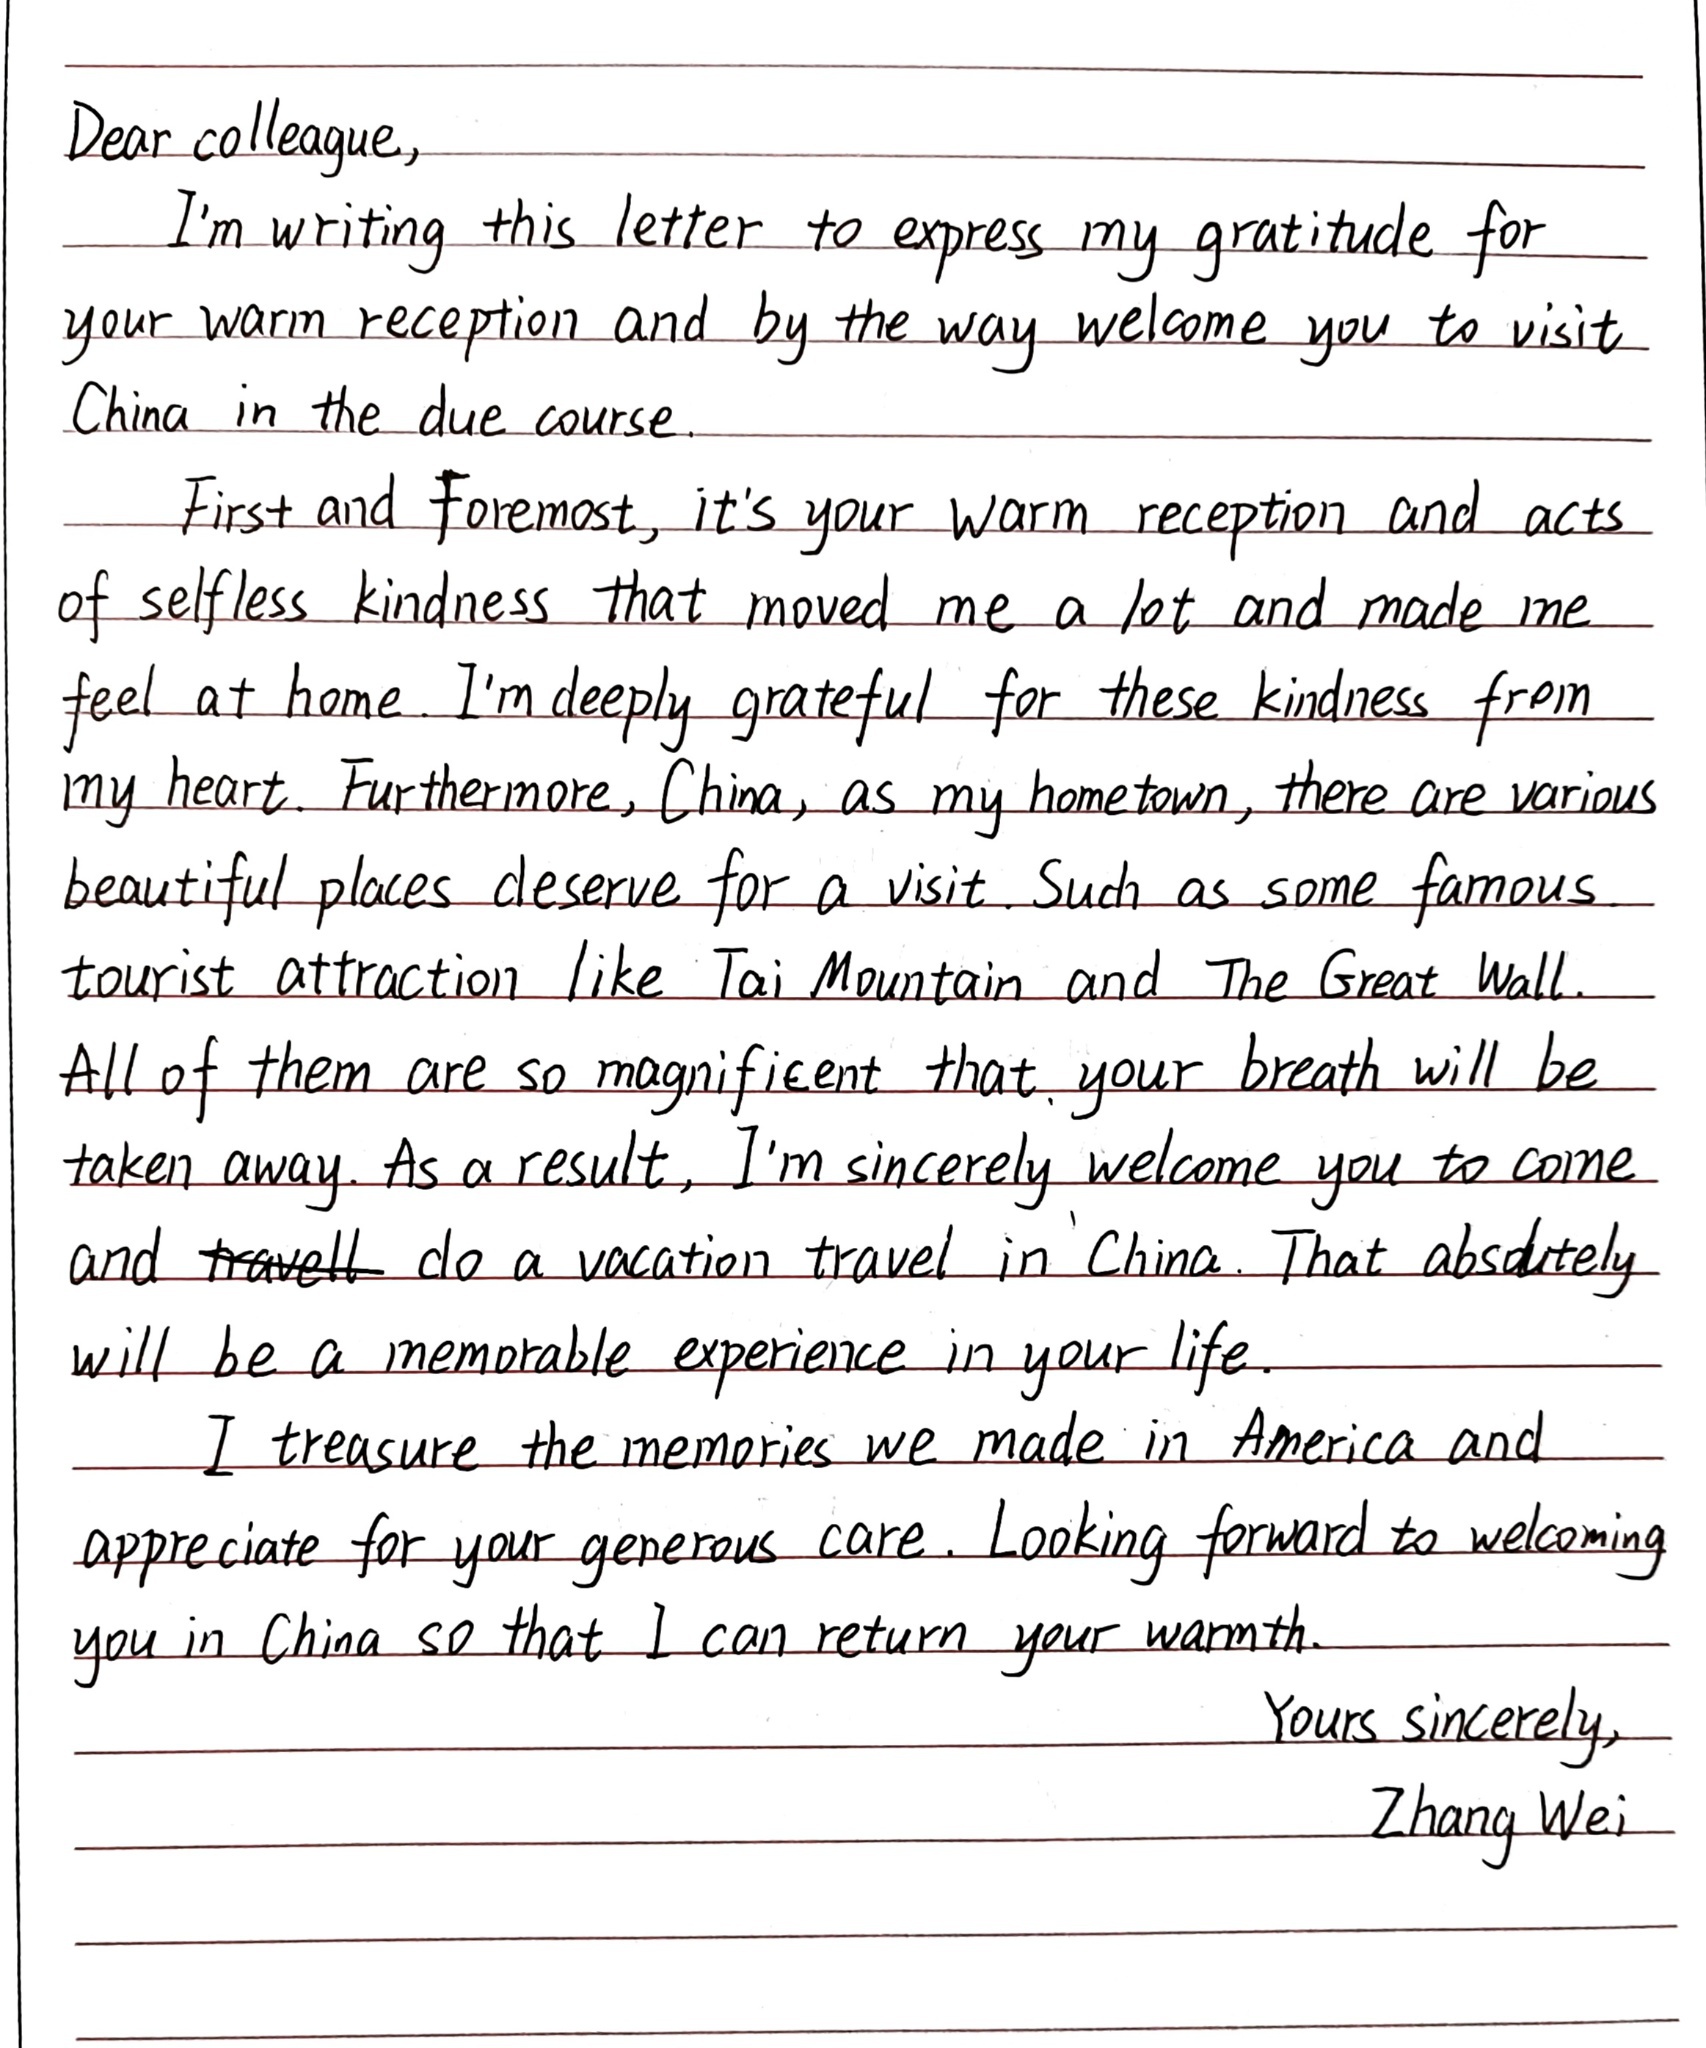 Dear colleague,
I'm writing this letter to express my gratitude for
your warm reception and by the way welcome you to visit
China in the due course.
First and Foremost, it's your warm reception and acts
of selfless kindness that moved me a lot and made me
feel at home. I'm deeply grateful for these kindness from
my heart. Furthermore, China, as my hometown, there are various
beautiful places deserve for a visit. Such as some famous
tourist attraction like Tai Mountain and The Great Wall.
All of them are so magnificent that your breath will be
taken away. As a result, I'm sincerely welcome you to come
and travell do a vacation travel in China. That absolutely
will be a memorable experience in your life.
I treasure the memories we made in America and
appreciate for your generous care. Looking forward to welcoming
you in China so that I can return your warmth.
Yours sincerely,
Zhang Wei